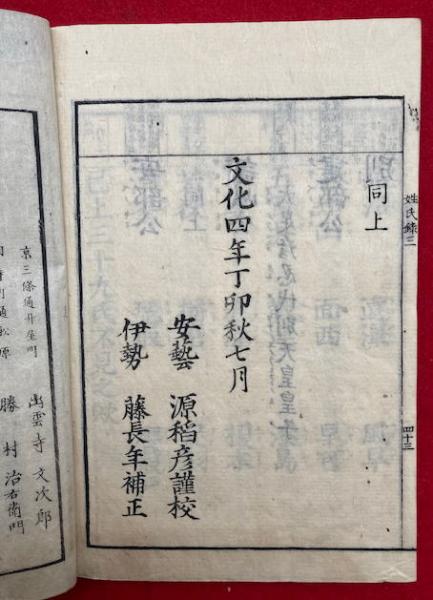 姓氏錄三
四十三
同上
文化四年丁卯秋七月
安藝 源稻彦謹校
伊勢 藤長年補正
京三條通升屋町
出雲寺文次郎
勝村治右衛門